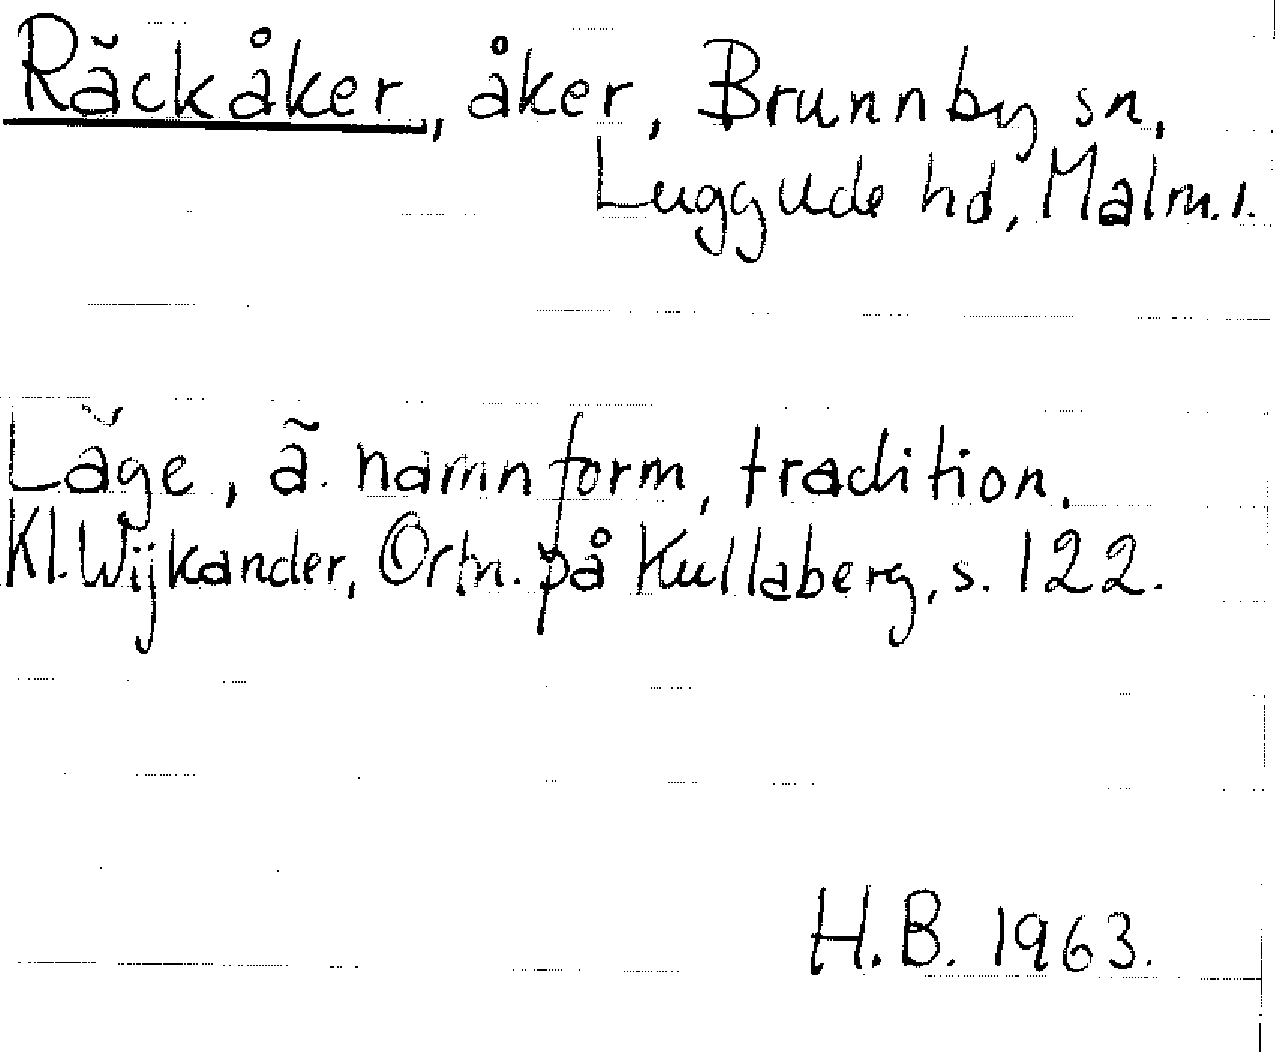 Räckåker, åker, Brunnby sn,
Luggude hd, Malm. l.
Läge, ä. namnform, tradition.
Kl. Wijkander, Ortn. på Kullaberg, s. 122.
H.B. 1963.